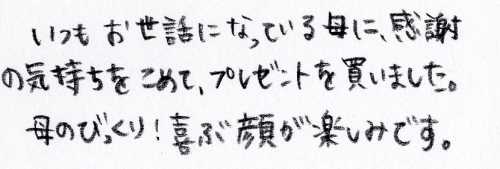 いつもお世話になっている母に、感謝
の気持ちをこめて、プレゼントを買いました。
母のびっくり！喜ぶ顔が楽しみです。